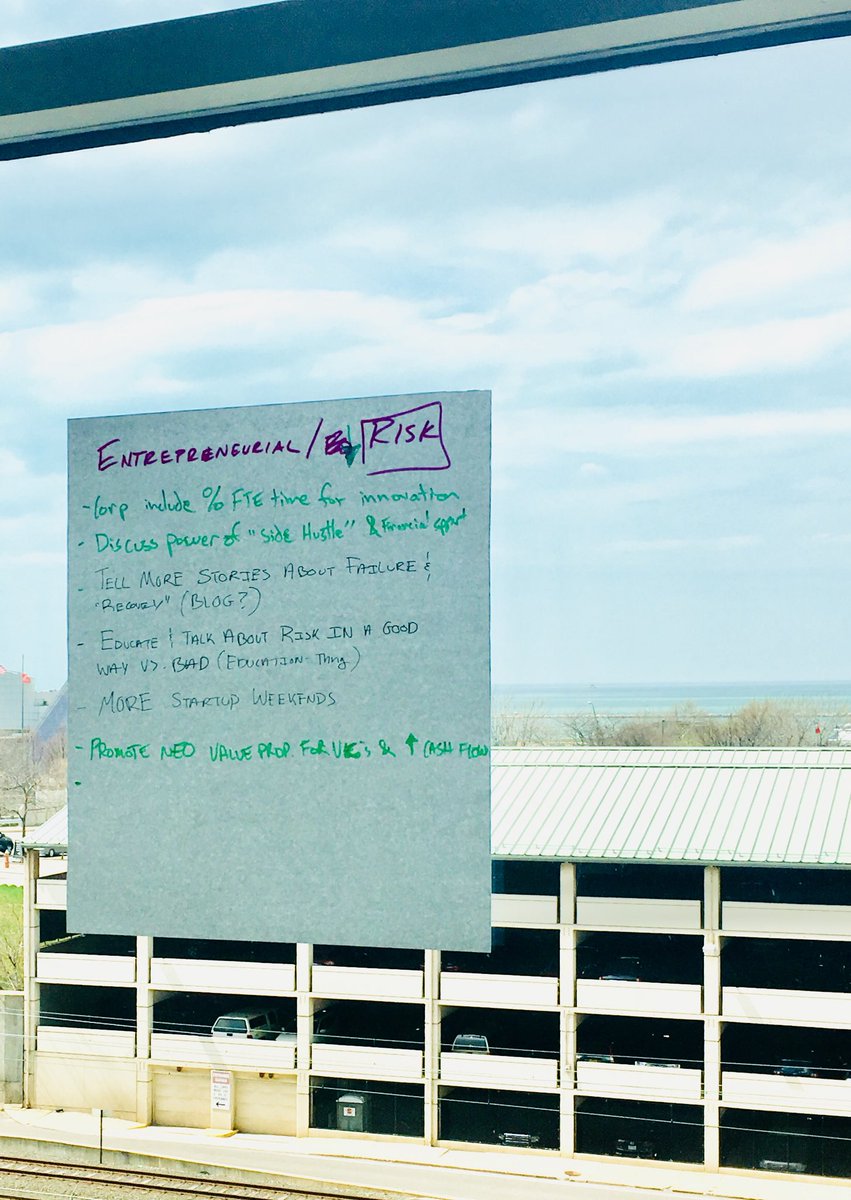 ENTREPRENEURIAL/ RISK
- Corp include % FTE time for innovation
- Discuss power of "Side Hustle" & Financial
- TELL MORE STORIES ABOUT FAILURE &
"RECOVERY" (BLOG?)
- EDUCATE & TALK ABOUT RISK IN A GOOD
WAY VS. BAD (EDUCATION-Thing)
- MORE STARTUP WEEKENDS
- PROMOTE NEO VALUE PROP. FOR VC's & ↑ CASH FLOW
-